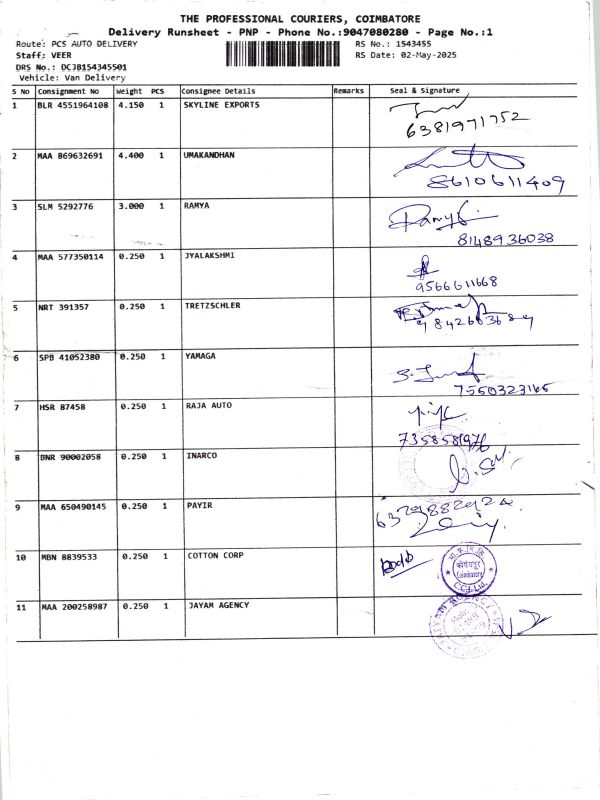 THE PROFESSIONAL COURIERS, COIMBATORE
Delivery Runsheet - PNP - Phone No.:9047080280 - Page No.:1
Route: PCS AUTO DELIVERY RS No.: 1543455
Staff: VEER RS Date: 02-May-2025
DRS No.: DCJB154345501
Vehicle: Van Delivery
S No Consignment No Weight PCS Consignee Details Remarks Seal & Signature
1 BLR 4551964108 4.150 1 SKYLINE EXPORTS
6381971752
2 MAA 869632691 4.400 1 UMAKANDHAN
8610611409
3 SLM 5292776 3.000 1 RAMYA
8148936038
4 MAA 577350114 0.250 1 JYALAKSHMI
9566611668
5 NRT 391357 0.250 1 TRETZSCHLER
6 SPB 41052380 0.250 1 YAMAGA
7550323165
7 HSR 87458 0.250 1 RAJA AUTO
8 BNR 90002058 0.250 1 INARCO
9 MAA 650490145 0.250 1 PAYIR
10 MBN 8839533 0.250 1 COTTON CORP
Coimbatore
CCI Ltd.
11 MAA 200258987 0.250 1 JAYAM AGENCY